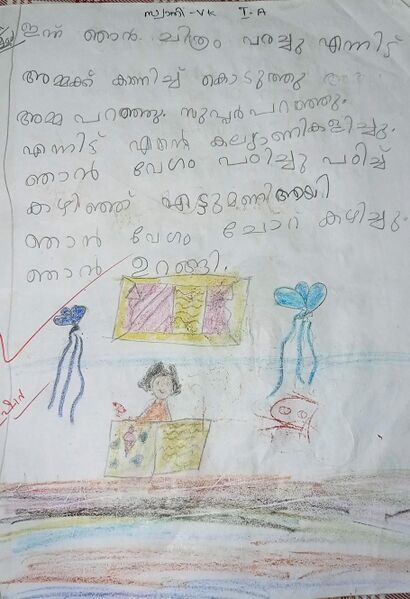 സ്വാനി-VK I-A
ഇന്ന് ഞാൻ ചിത്രം വരച്ചു എന്നിട്ട്
അമ്മക്ക് കാണിച്ച് കൊടുത്തു
അമ്മ പറഞ്ഞു. സൂപ്പർ പറഞ്ഞു.
എന്നിട്ട് ഏതൻ കല്യാണികളിച്ചു.
ഞാൻ വേഗം പഠിച്ചു പഠിച്ച്
കഴിഞ്ഞ് എട്ടുമണി ആയി
ഞാൻ വേഗം ചോറ് കഴിച്ചു.
ഞാൻ ഉറങ്ങി.